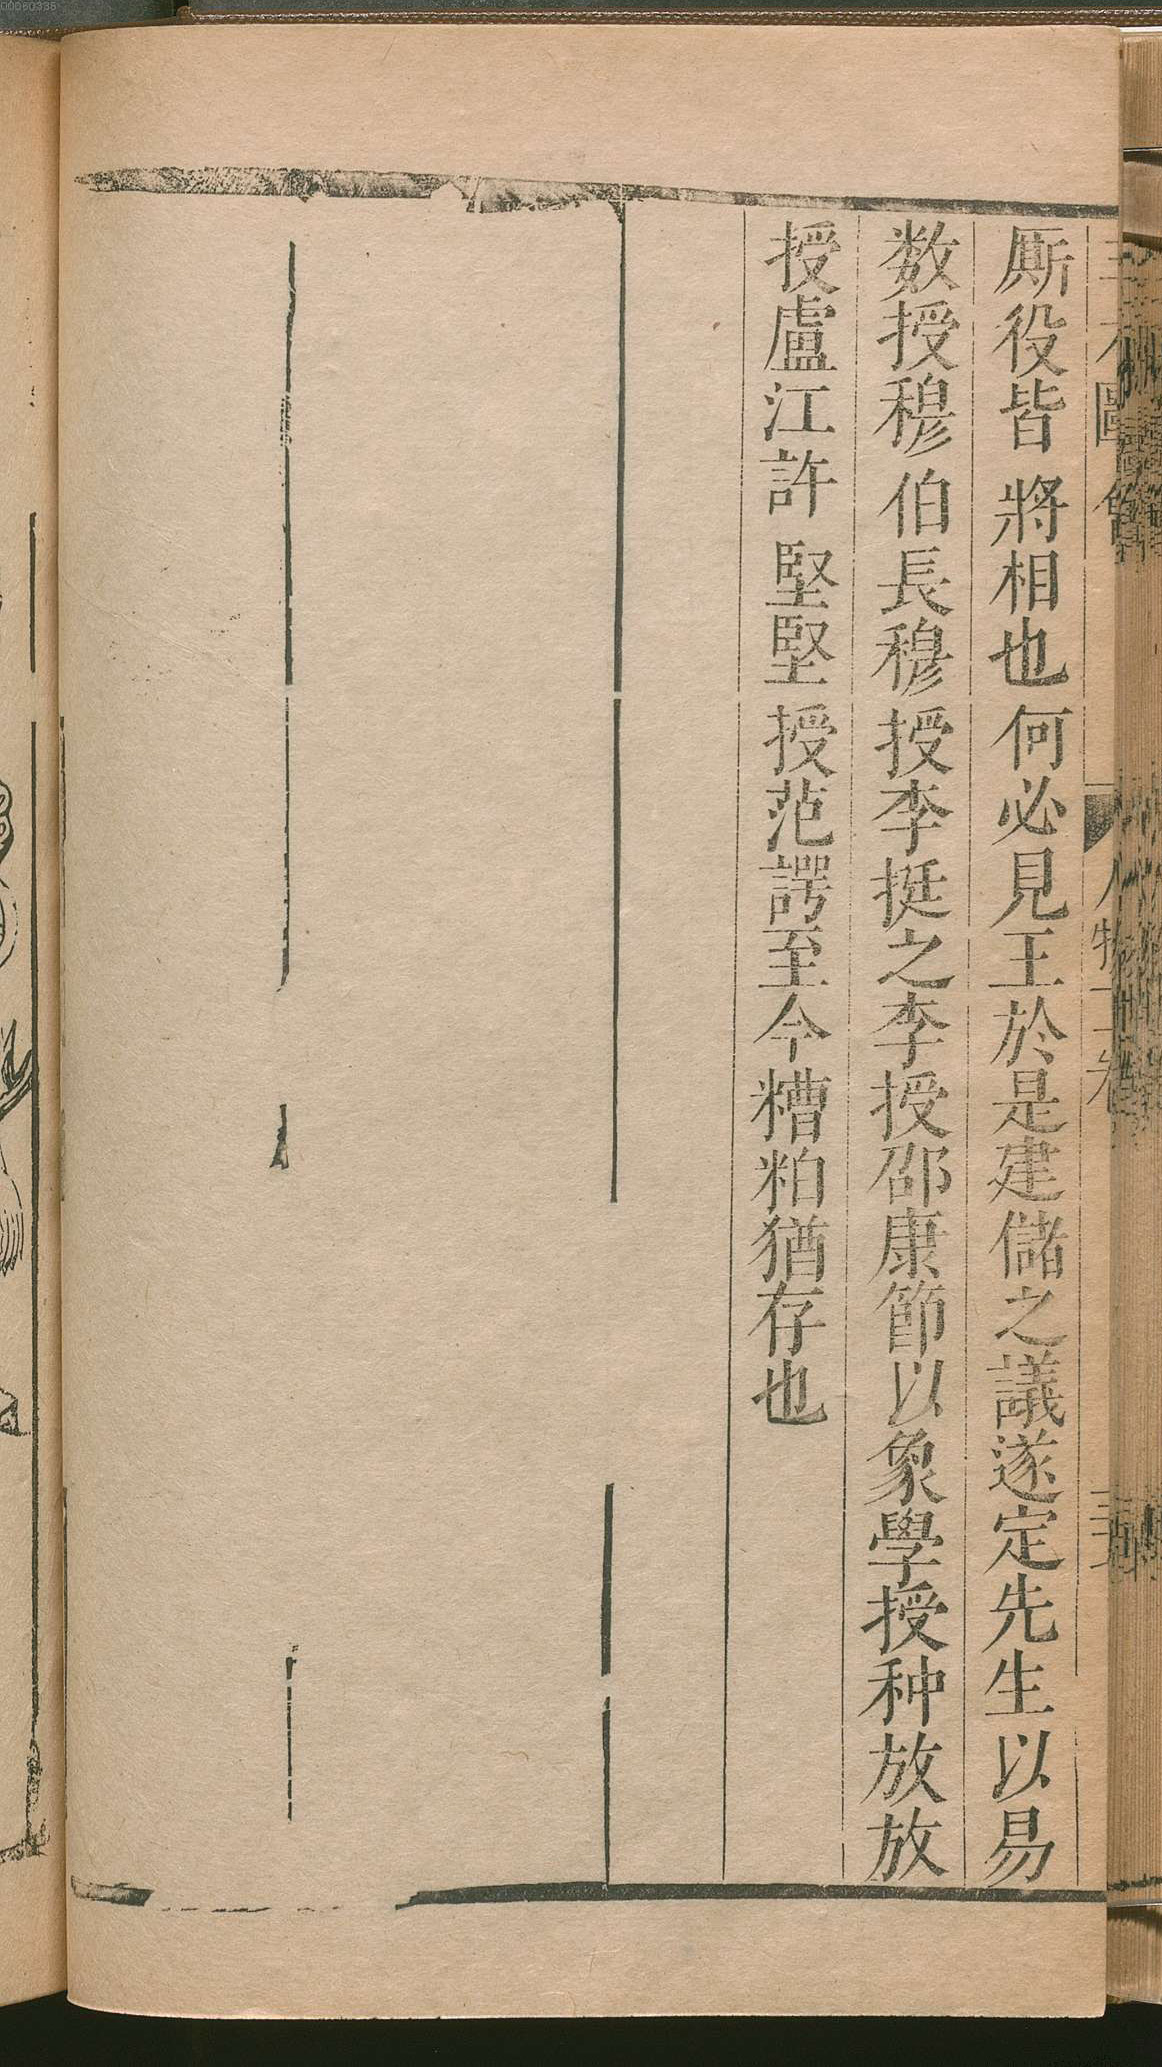 厮役皆將相也何必見王於是建儲之議遂定先生以易
数授穆伯長穆授李挺之李授邵康節以象學授种放放
授盧江許堅堅授范諤至今糟粕猶存也
00060335